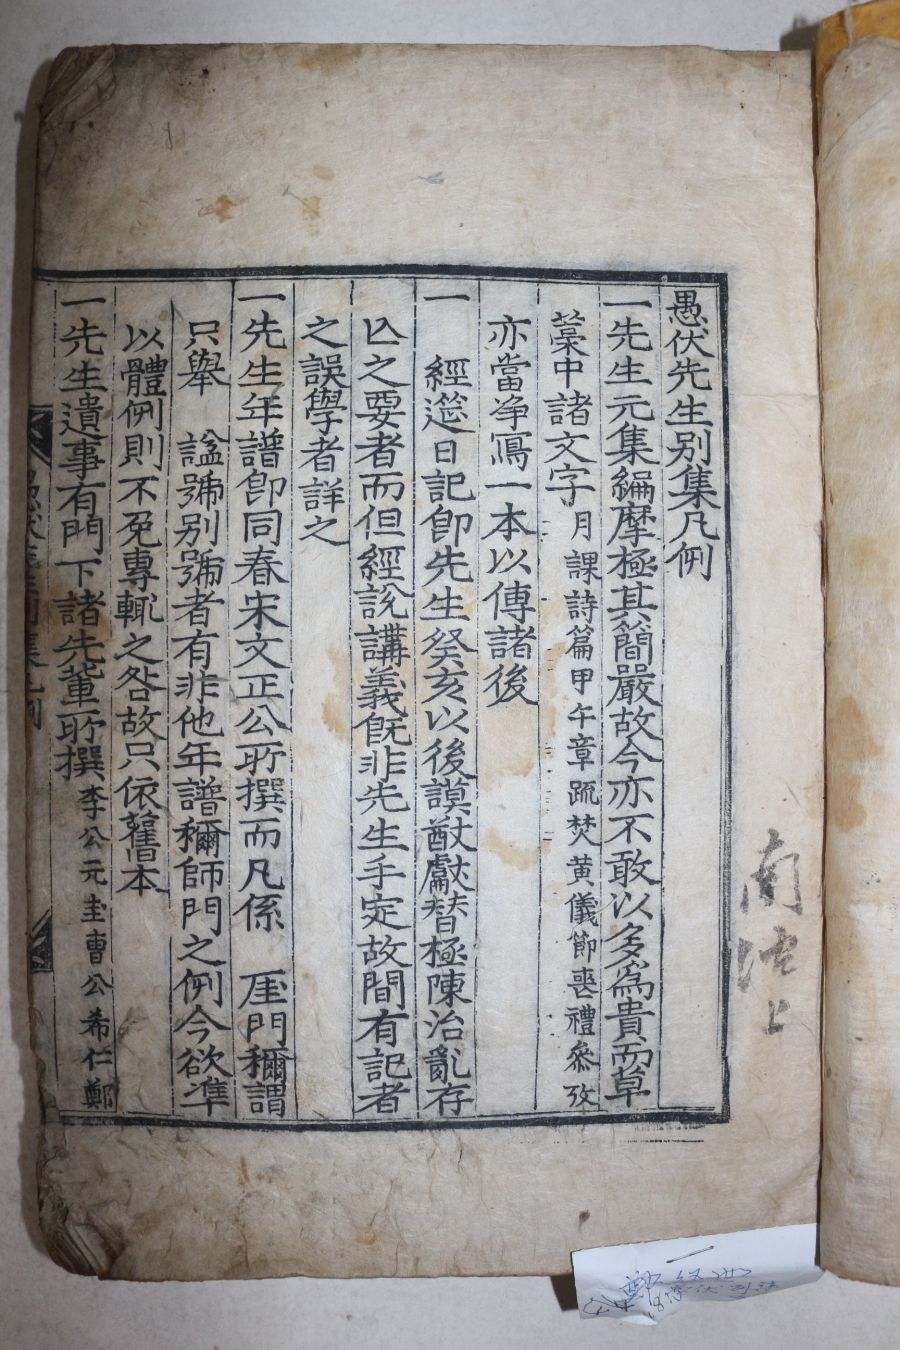 愚伏先生別集凡例
一先生元集編摩極其簡嚴故今亦不敢以多爲貴而草
藁中諸文字月課詩篇甲午章疏焚黃儀節喪禮叅攷
亦當淨寫一本以傳諸後
一 經筵日記卽先生癸亥以後謨猷獻替極陳治亂存
亾之要者而但經說講義旣非先生手定故間有記者
之誤學者詳之
一先生年譜卽同春宋文正公所撰而凡係 厓門稱謂
只擧 謚號別號者有非他年譜稱師門之例今欲準
以體例則不免專輒之咎故只依舊本
一先生遺事有門下諸先輩所撰李公元圭曺公希仁鄭
南
上